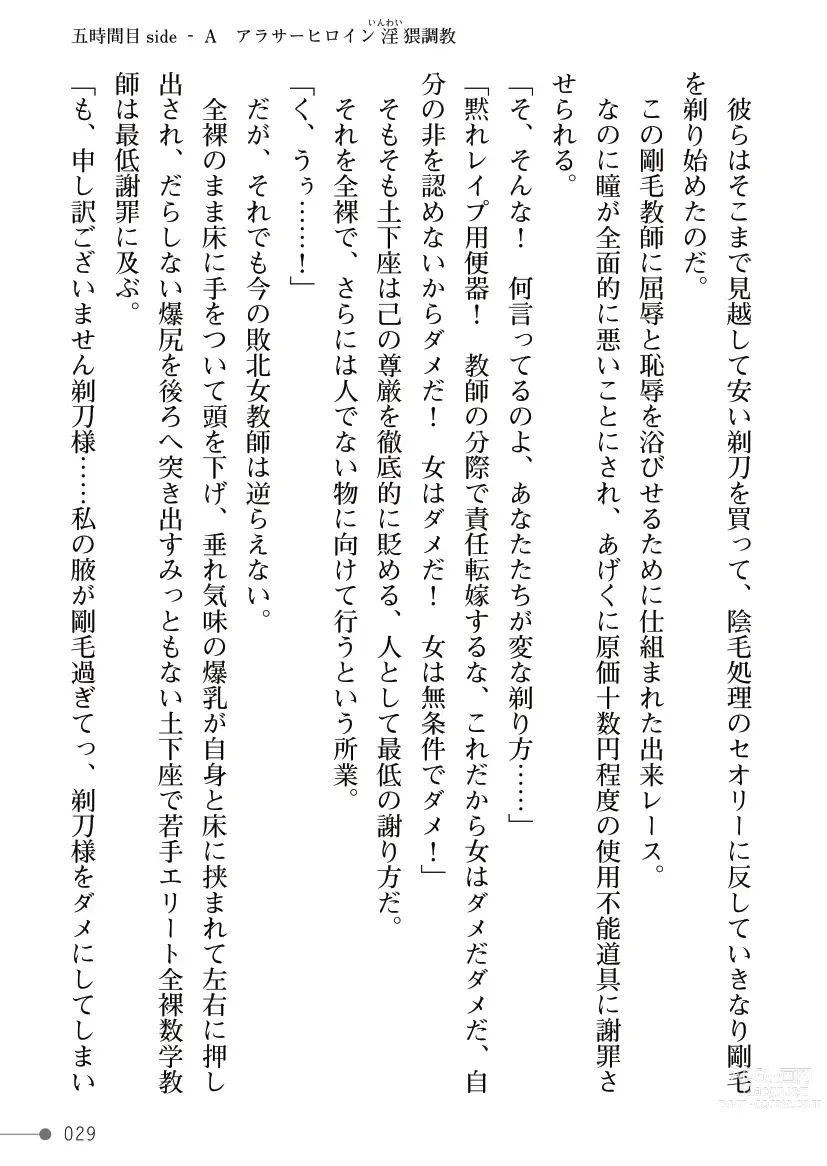 五時間目 side‐A　アラサーヒロイン淫猥調教
いんわい
彼らはそこまで見越して安い剃刀を買って、陰毛処理のセオリーに反していきなり剛毛
を剃り始めたのだ。
この剛毛教師に屈辱と恥辱を浴びせるために仕組まれた出来レース。
なのに瞳が全面的に悪いことにされ、あげくに原価十数円程度の使用不能道具に謝罪さ
せられる。
「そ、そんな！　何言ってるのよ、あなたたちが変な剃り方……」
「黙れレイプ用便器！　教師の分際で責任転嫁するな、これだから女はダメだダメだ、自
分の非を認めないからダメだ！　女はダメだ！　女は無条件でダメ！」
そもそも土下座は己の尊厳を徹底的に貶める、人として最低の謝り方だ。
それを全裸で、さらには人でない物に向けて行うという所業。
「く、うぅ……！」
だが、それでも今の敗北女教師は逆らえない。
全裸のまま床に手をついて頭を下げ、垂れ気味の爆乳が自身と床に挟まれて左右に押し
出され、だらしない爆尻を後ろへ突き出すみっともない土下座で若手エリート全裸数学教
師は最低謝罪に及ぶ。
「も、申し訳ございません剃刀様……私の腋が剛毛過ぎてっ、剃刀様をダメにしてしまい
029